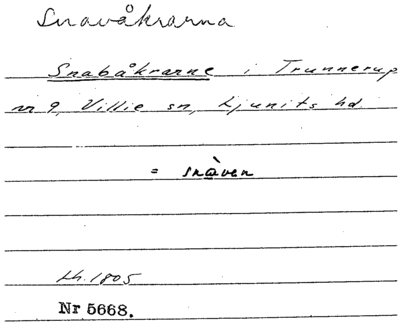 Snavåkrarna
Snabåkrarne i Trunnerup
nr 9, Villie sn, Ljunits hd
= snàven
Lh. 1805
Nr 5668.